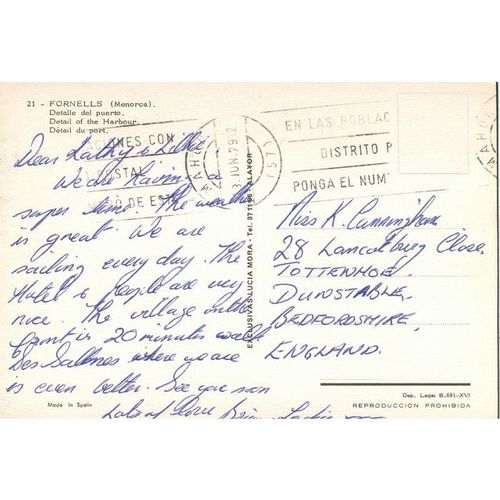 21 - FORNELLS (Menorca).
Detalle del puerto.
Detail of the Harbour.
Détail du port.
EN LAS POBLAC
DISTRITO P
PONGA EL NUM
JUN.79
Dear Kathy &
We are having a
super time. The weather
is great. We are
sailing every day. The
Hotel & people are very
nice. The village
is 20 minutes walk
Des Salines where you are
is even better. See you soon
Lots of love
Made in Spain
EXCLUSIVAS LUCIA MORA - Tel. ALAYOR
Miss K. Cunningham
28 Close,
TOTTENHOE,
DUNSTABLE,
BEDFORDSHIRE,
ENGLAND.
Dep. Legal B.681-XVI
REPRODUCCION PROHIBIDA